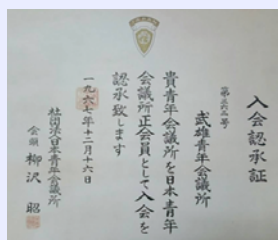 入会認承証
武雄青年会議所
貴青年会議所を日本青年
会議所正会員として入会を
認承致します
一九六七年十二月十六日
社団法人日本青年会議所
会頭 柳沢 昭